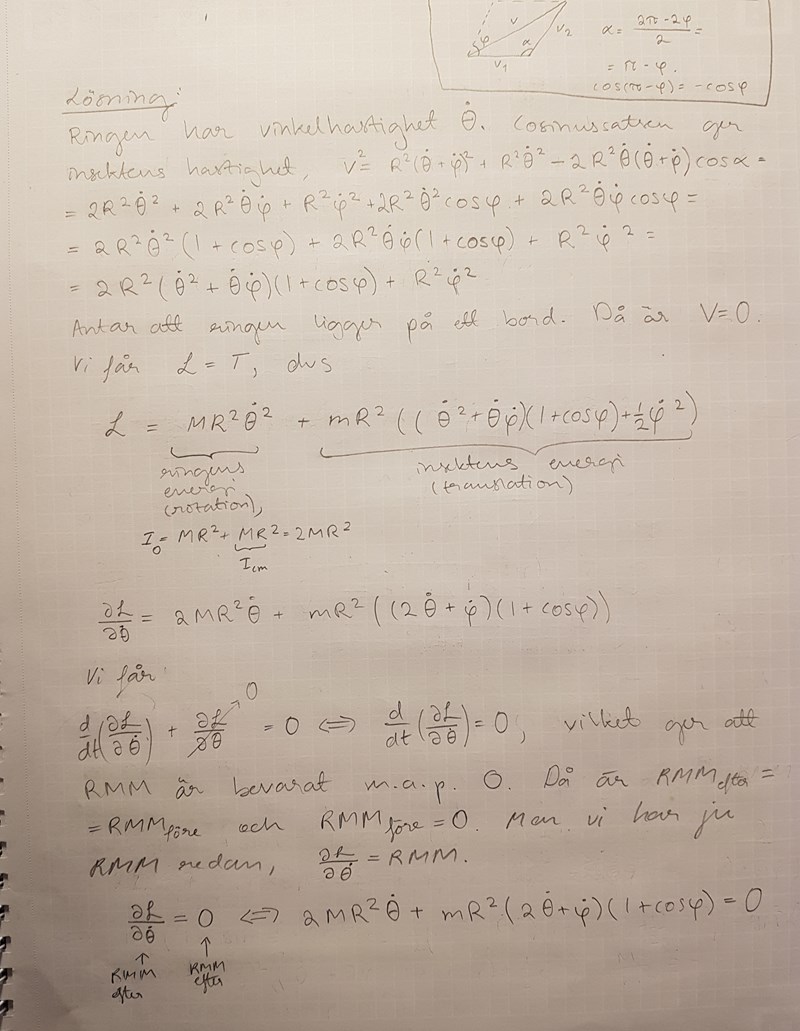 φ v v₂ α v₁
α = (2π - 2φ)/2 =
= π - φ.
cos(π-φ) = -cosφ
Lösning:
Ringen har vinkelhastighet θ̇. Cosinussatsen ger
insektens hastighet, v² = R²(θ̇+φ̇)² + R²θ̇² - 2R²θ̇(θ̇+φ̇)cosα =
= 2R²θ̇² + 2R²θ̇φ̇ + R²φ̇² + 2R²θ̇²cosφ + 2R²θ̇φ̇cosφ =
= 2R²θ̇²(1+cosφ) + 2R²θ̇φ̇(1+cosφ) + R²φ̇² =
= 2R²(θ̇² + θ̇φ̇)(1+cosφ) + R²φ̇²
Antar att ringen ligger på ett bord. Då är V=0.
Vi får L = T, dvs
L = MR²θ̇² + mR²((θ̇²+θ̇φ̇)(1+cosφ)+½φ̇²)
ringens energi (rotation),
insektens energi (translation)
I₀ = MR² + MR² = 2MR²
I_cm
∂L/∂θ̇ = 2MR²θ̇ + mR²((2θ̇+φ̇)(1+cosφ))
Vi får
d/dt(∂L/∂θ̇) + ∂L/∂θ → 0 = 0 ⟺ d/dt(∂L/∂θ̇) = 0, vilket ger att
RMM är bevarat m.a.p. O. Då är RMM_efter =
= RMM_före och RMM_före = 0. Men vi har ju
RMM redan, ∂L/∂θ̇ = RMM.
∂L/∂θ̇ = 0 ⟺ 2MR²θ̇ + mR²(2θ̇+φ̇)(1+cosφ) = 0
↑ ↑
RMM efter RMM efter